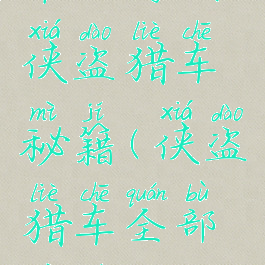 xiá dào liè chē
侠盗猎车
mì jí xiá dào
秘籍(侠盗
liè chē quán bù
猎车全部